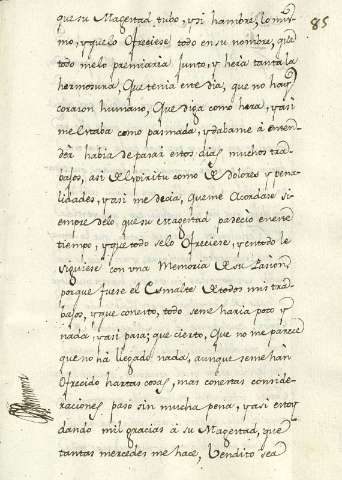 85
que su Magestad tubo, y si hambre, lo mis-
mo, y que lo Ofreciese todo en su nombre, que
todo me lo premiaria junto, y hera tanta la
hermosura, Que tenia este dia, que no hay
corazon humano, Que diga como hera, y asi
me estaba como pasmada, y dabame à enten-
der habia de pasar estos dias muchos tra-
bajos, asi de Espiritu como de dolores y pena-
lidades, y asi me decia, que me Acordase si-
empre de lo que su Magestad padecio en este
tiempo, y que todo se lo Ofreciese, y en todo le
siguiese con una Memoria de su Pasion,
porque fuese el Esmalte de todos mis tra-
bajos, y que con esto, todo se me haria poco y
nada, y asi pasa; que cierto, Que no me parece
que no hà llegado nada, aunque se me hàn
Ofrecido hartas cosas, mas con estas conside-
raciones paso sin mucha pena, y asi estoy
dando mil gracias à su Magestad, que
tantas mercedes me hace, Vendito sea